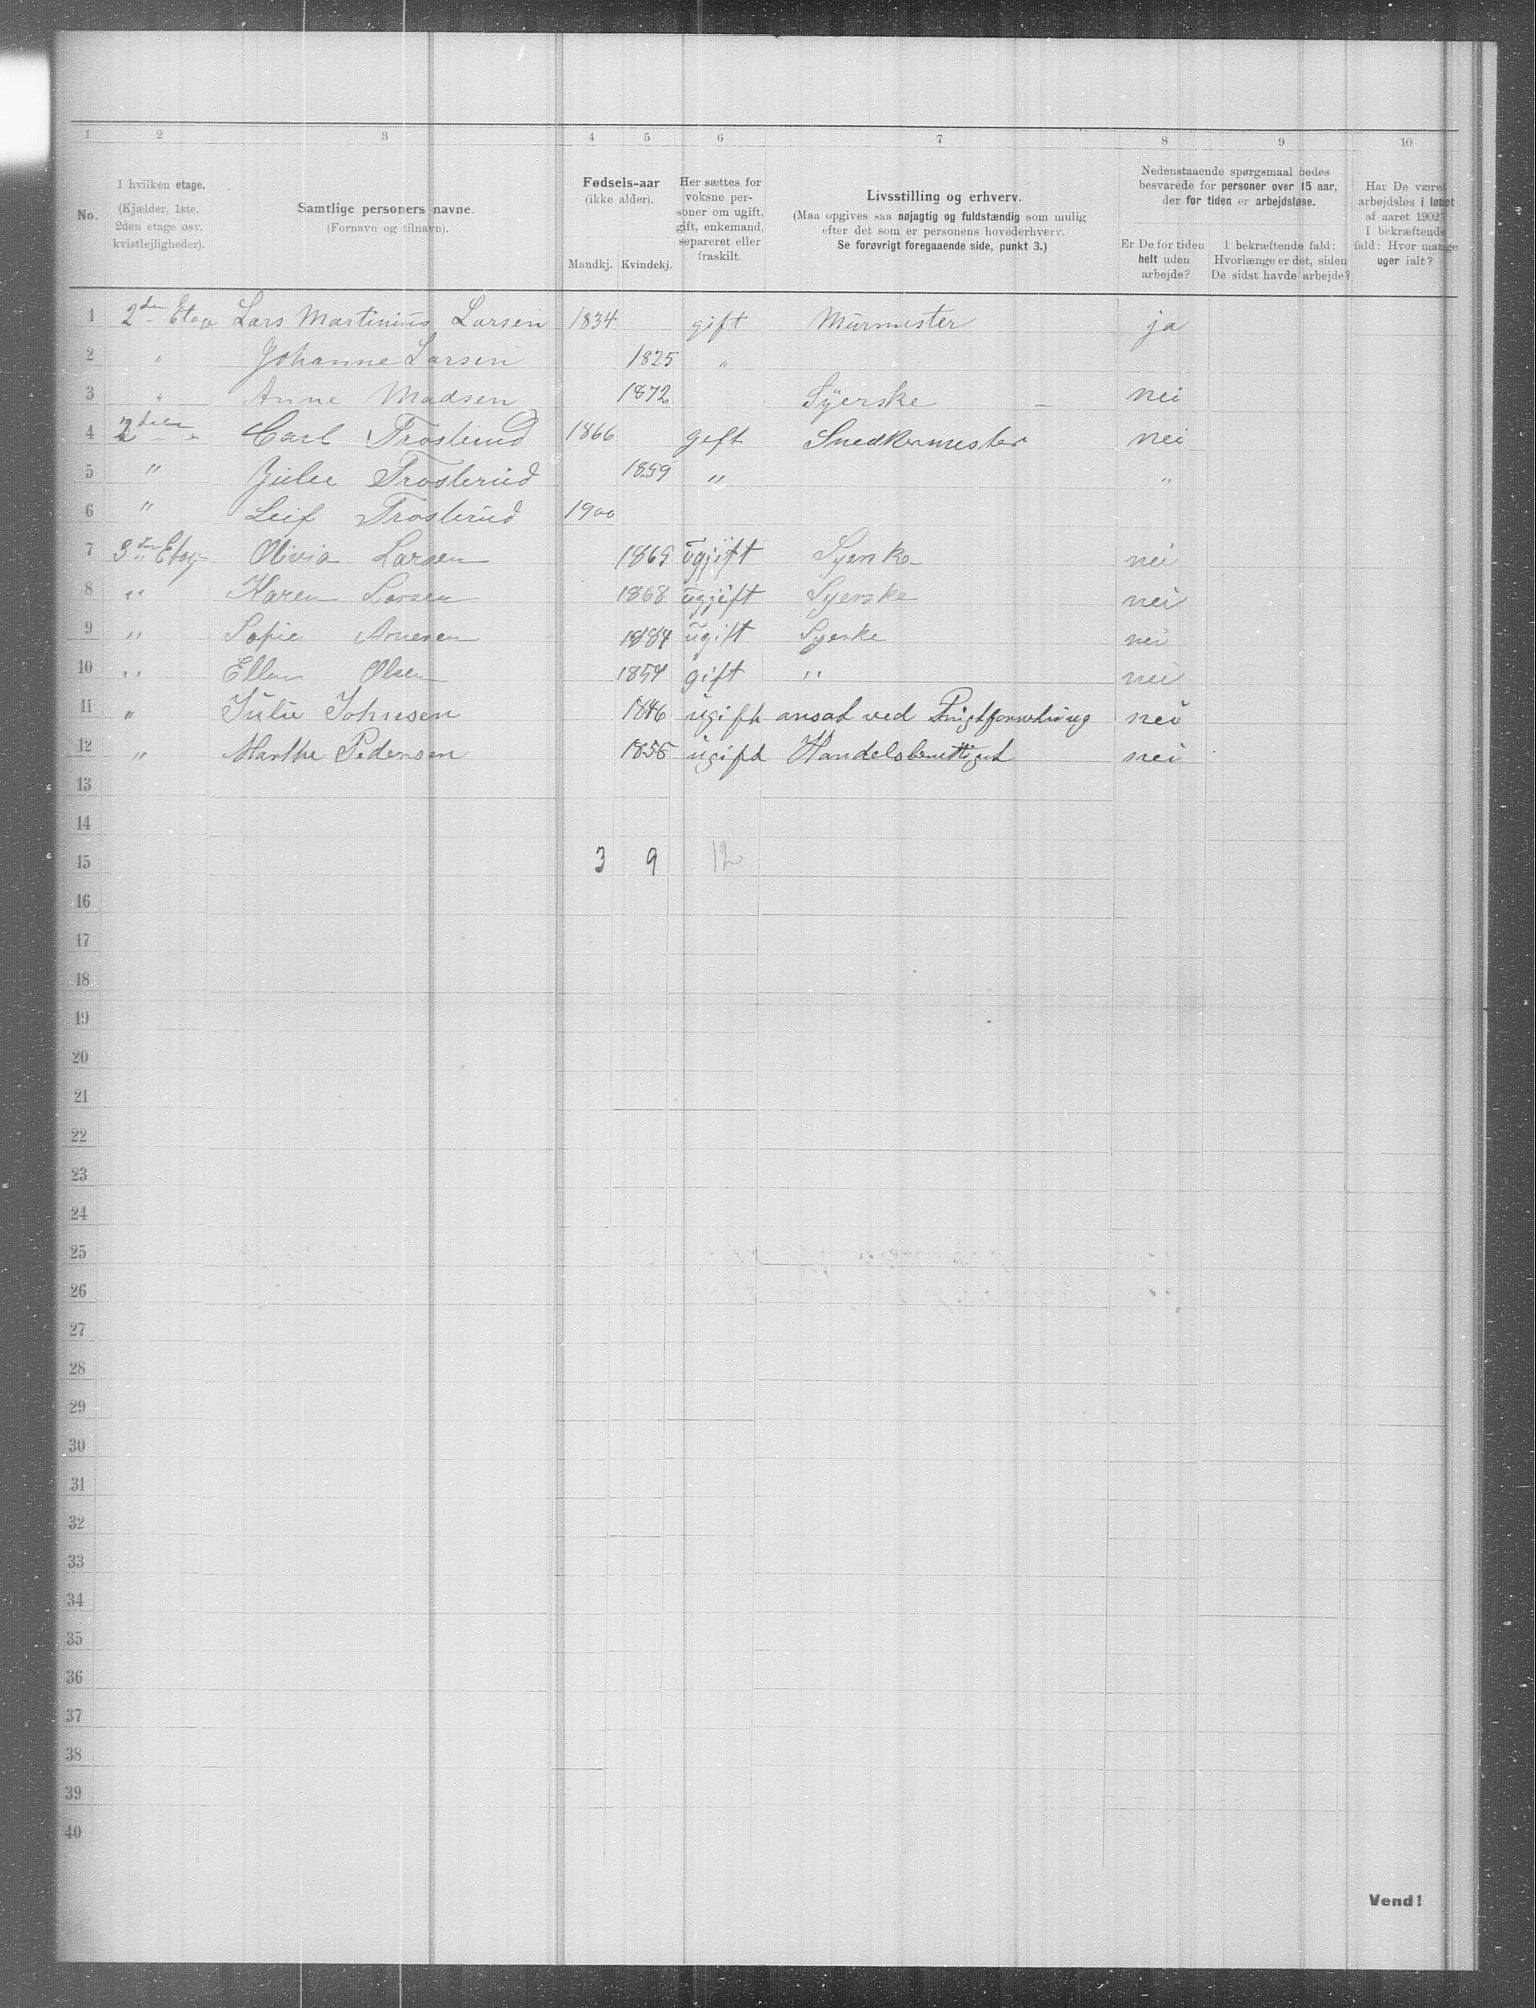 1 2 3 4 5 6 7 8 9 10
No.
I hvilken etage.
(Kjælder, 1ste,
2den etage osv.
kvistlejligheder).
Samtlige personers navne.
(Fornavn og tilnavn).
Fødsels-aar
(ikke alder).
Mandkj. Kvindekj.
Her sættes for
voksne per-
soner om ugift,
gift, enkemand,
separeret eller
fraskilt.
Livsstilling og erhverv.
(Maa opgives saa nøjagtig og fuldstændig som mulig
efter det som er personens hovederhverv.
Se forøvrigt foregaaende side, punkt 3.)
Nedenstaaende spørgsmaal bedes
besvarede for personer over 15 aar,
der for tiden er arbejdsløse.
Er De for tiden
helt uden
arbejde?
I bekræftende fald:
Hvorlænge er det, siden
De sidst havde arbejde?
Har De været
arbejdsløs i løbet
af aaret 1902?
I bekræftende
fald: Hvor mange
uger ialt?
1 2den Etage Lars Martinius Larsen 1834 gift Murmester ja
2 " Johanne Larsen 1825 "
3 " Anne Madsen 1872 Syerske nei
4 2den " Carl Trosterud 1866 gift Snedkermester nei
5 " Julie Trosterud 1859 " "
6 " Leif Trosterud 1900
7 3den Etage Olivia Larsen 1865 ugjift Syerske nei
8 " Karen Larsen 1868 ugjift Syerske nei
9 " Sofie Arnesen 1884 ugift Syerske nei
10 " Ellen Olsen 1854 gift " nei
11 " Julie Johnsen 1846 ugift ansat ved nei
12 " Marthe Pedersen 1856 ugift Handelsberettiget nei
13
14
15 3 9 12
16
17
18
19
20
21
22
23
24
25
26
27
28
29
30
31
32
33
34
35
36
37
38
39
40
Vend!